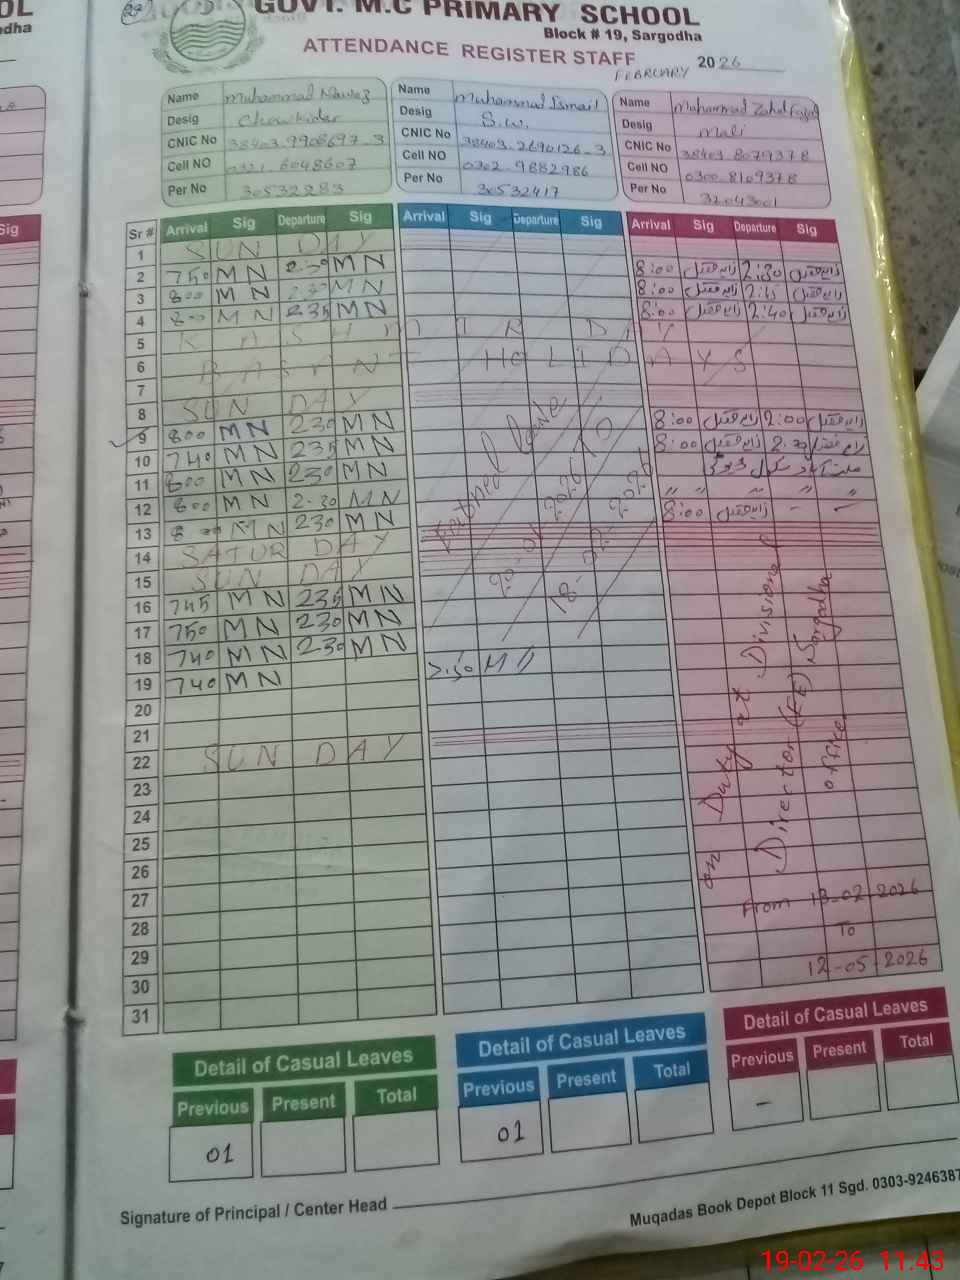 GOVT. M.C PRIMARY SCHOOL
Block # 19, Sargodha
ATTENDANCE REGISTER STAFF
FEBRUARY 2026
Name Muhammad Nawaz
Desig Chowkidar
CNIC No 38403-9908697-3
Cell NO 0321-6048607
Per No 30532283
Name Muhammad Ismail
Desig S.W.
CNIC No 38403-2690126-3
Cell NO 0302-9882986
Per No 30532417
Name Muhammad Zahid
Desig Mali
CNIC No 38403 8079378
Cell NO 0300-8109378
Per No 32043001
Sr # Arrival Sig Departure Sig Arrival Sig Departure Sig Arrival Sig Departure Sig
1 SUN DAY
2 750 MN 2:30 MN 8:00 2:30
3 800 MN 230 MN 8:00 2:45
4 800 MN 235 MN 8:00 2:40
5 KASHMIR DAY
6 BASANT HOLIDAYS
7
8 SUN DAY
9 800 MN 230 MN 8:00 2:00
10 740 MN 235 MN 8:00
11 800 MN 230 MN
12 800 MN 2-30 MN 〃 〃 〃 〃 〃
13 MN 230 MN 8:00 - -
14 SATUR DAY
15 SUN DAY
16 745 MN 235 MN
17 750 MN 230 MN
18 740 MN 230 MN
19 740 MN
20
21
22 SUN DAY
23
24
25
26
27
28
29
30
31
2026 To
18-02-2026
on Duty at Divisional
Director (EE) Sargodha
office
From 13-02-2026
To
12-05-2026
Detail of Casual Leaves
Previous Present Total
01
Detail of Casual Leaves
Previous Present Total
01
Detail of Casual Leaves
Previous Present Total
-
Signature of Principal / Center Head
Muqadas Book Depot Block 11 Sgd. 0303-9246387
19-02-26 11.43